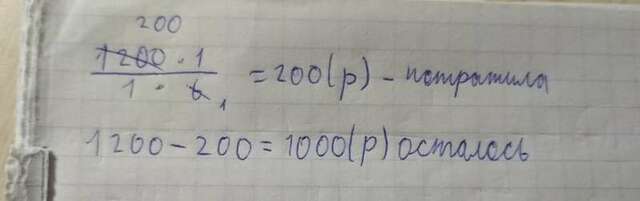 200
1200 · 1
1 · 6 1 = 200(р) – потратила
1200 – 200 = 1000(р) осталось